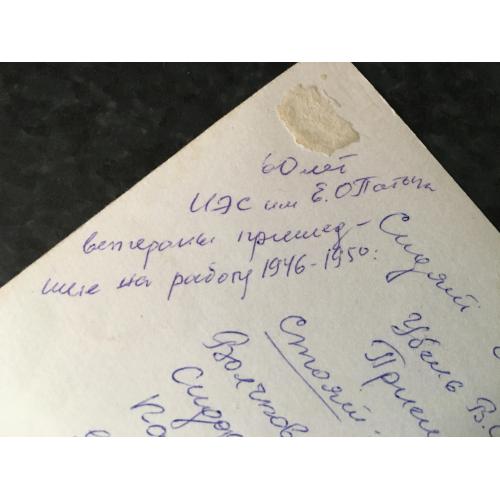 60 лет
ИЭС им Е. О Патона
ветераны пришед-
шие на работу 1946-1950:
Сидят
Убель В.
Стоят.
Волчков
Сидор